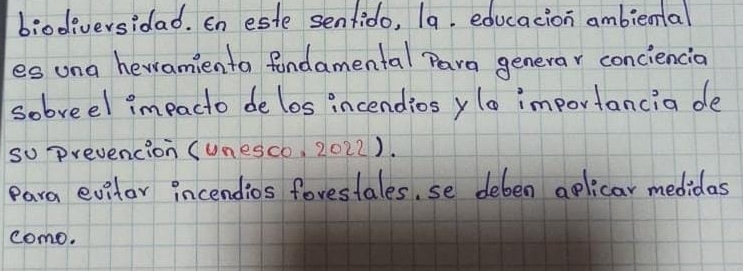 biodiversidad. En este sentido, la. educación ambiental
es una herramienta fundamental Para generar conciencia
sobre el impacto de los incendios y la importancia de
su Prevención (Unesco, 2022).
Para evitar incendios forestales, se deben aplicar medidas
como.